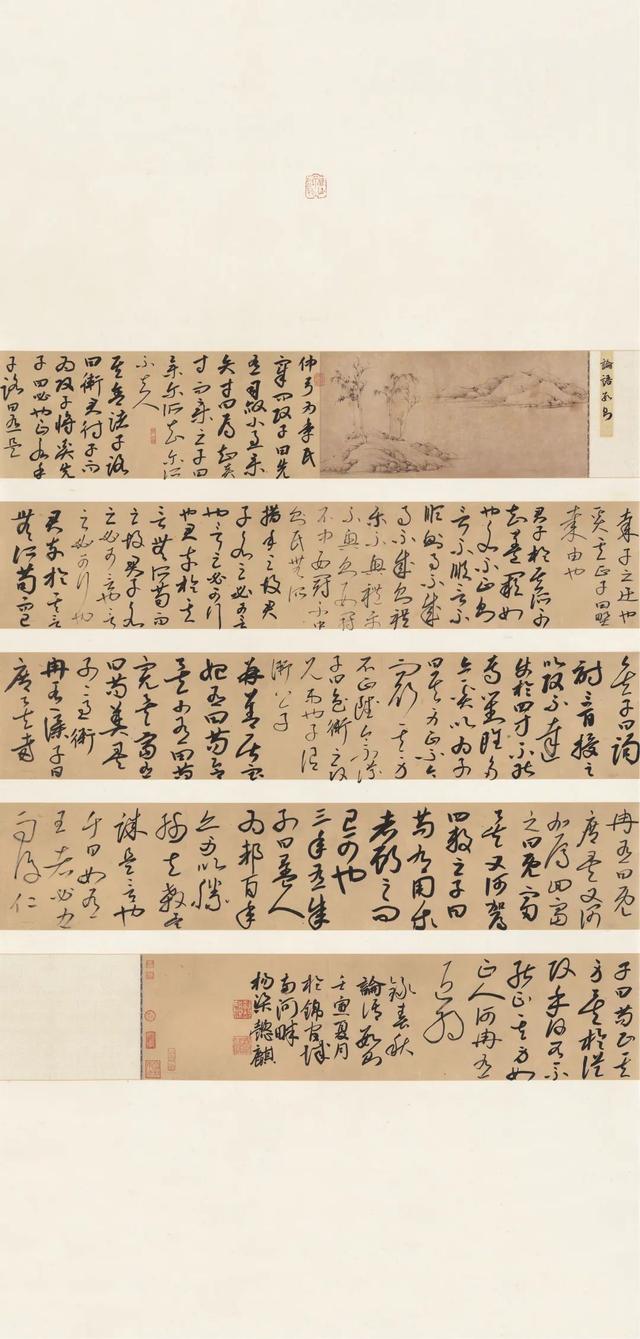 論語
仲弓為季氏
宰問政子曰先
有司赦小過舉
賢才曰焉知賢
才而舉之子曰
舉爾所知爾所
不知人
其舍諸子路
曰衛君待子而
為政子將奚先
子曰必也正名乎
子路曰有是
哉子之迂也
奚其正子曰野
哉由也
君子於其所不
知蓋闕如
也名不正則
言不順言不
順則事不成
事不成則禮
樂不興禮樂
不興則刑罰
不中刑罰不中
則民無所
措手足故君
子名之必可言
也言之必可行
也君子於其
言無所苟而
已故君子名
之必可言也言
之必可行也
君子於其言
無所苟而已
矣子曰誦
詩三百授之
以政不達
使於四方不能
專對雖多
亦奚以為子
曰其身正不令
而行其身
不正雖令不從
子曰魯衛之政
兄弟也子謂
衛公子
荊善居室
始有曰苟合
矣少有曰苟
完矣富有
曰苟美矣
子適衛
冉有僕子曰
庶矣哉
冉有曰既
庶矣又何
加焉曰富
之曰既富
矣又何加焉
曰教之子曰
苟有用我
者期月而
已可也
三年有成
子曰善人
為邦百年
亦可以勝
殘去殺矣
誠哉是言也
子曰如有
王者必世
而後仁
子曰苟正其
身矣於從
政乎何有不
能正其身如
正人何冉有
退朝
錄春秋
論語數則
壬寅夏月
於錦官城
南河畔
楊